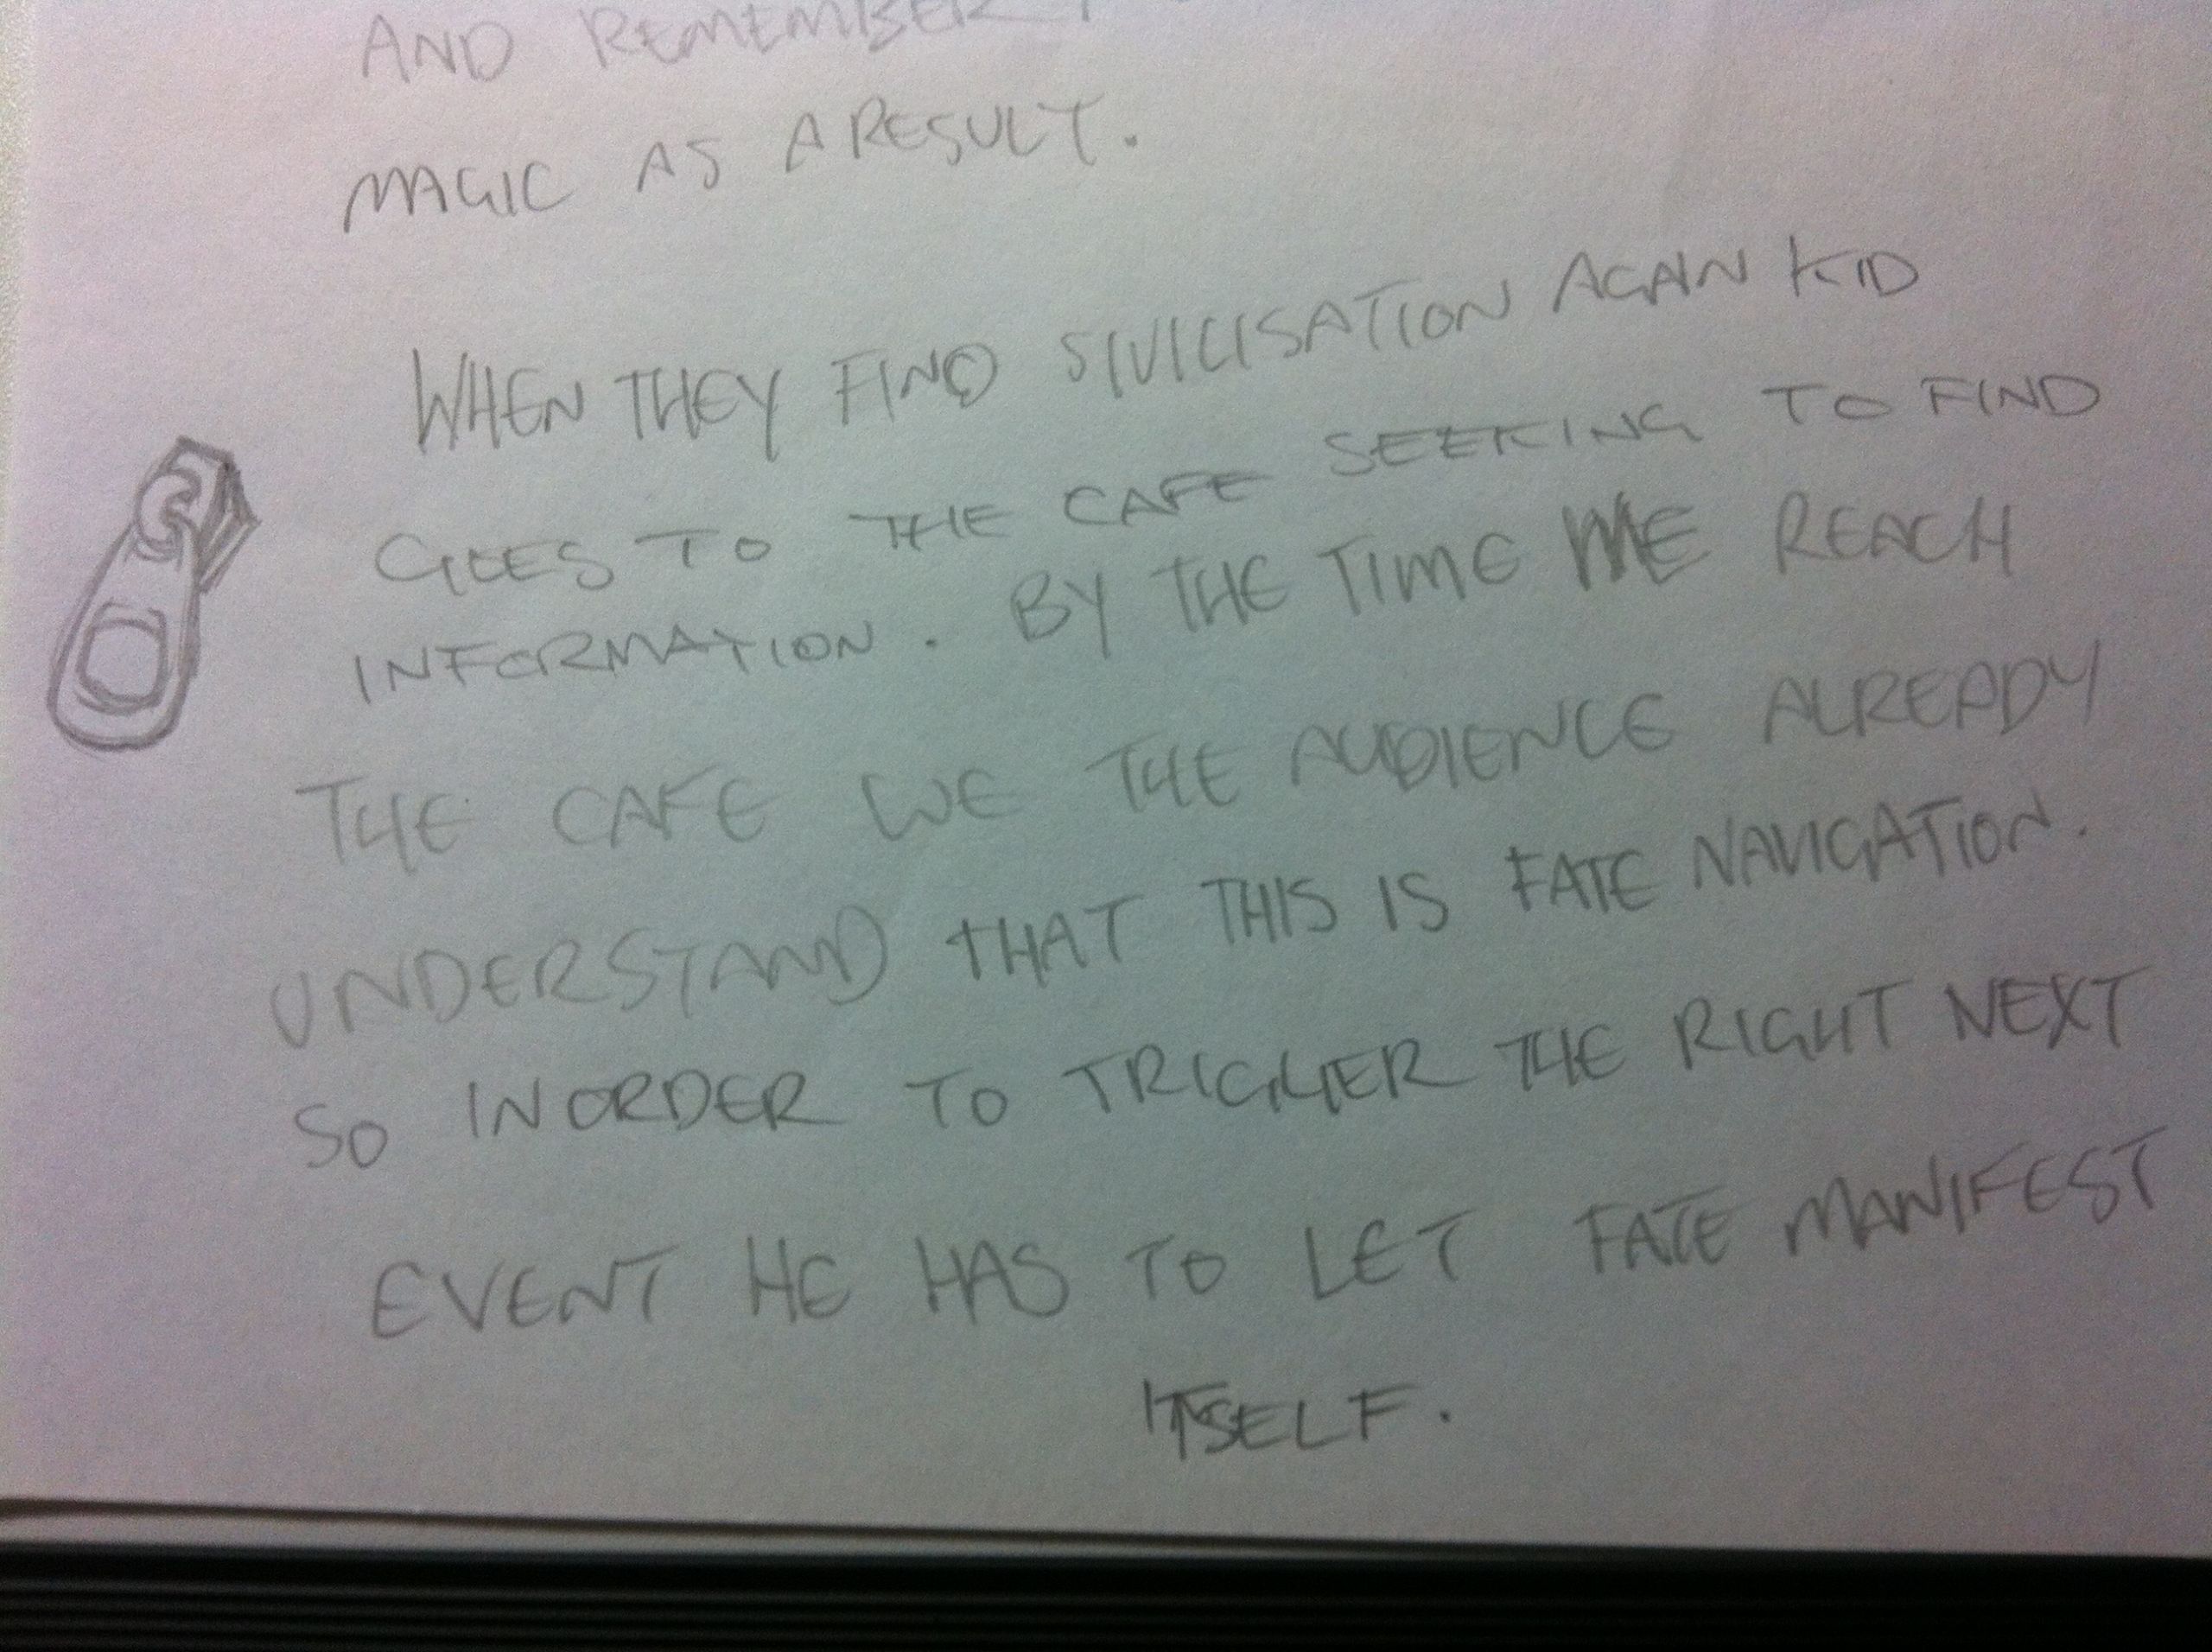 AND REMEMBER
MAGIC AS A RESULT.
WHEN THEY FIND SIVILISATION AGAIN KID
GOES TO THE CAFE SEEKING TO FIND
INFORMATION. BY THE TIME WE REACH
THE CAFE WE THE AUDIENCE ALREADY
UNDERSTAND THAT THIS IS FATE NAVIGATION.
SO IN ORDER TO TRIGGER THE RIGHT NEXT
EVENT HE HAS TO LET FATE MANIFEST
ITSELF.